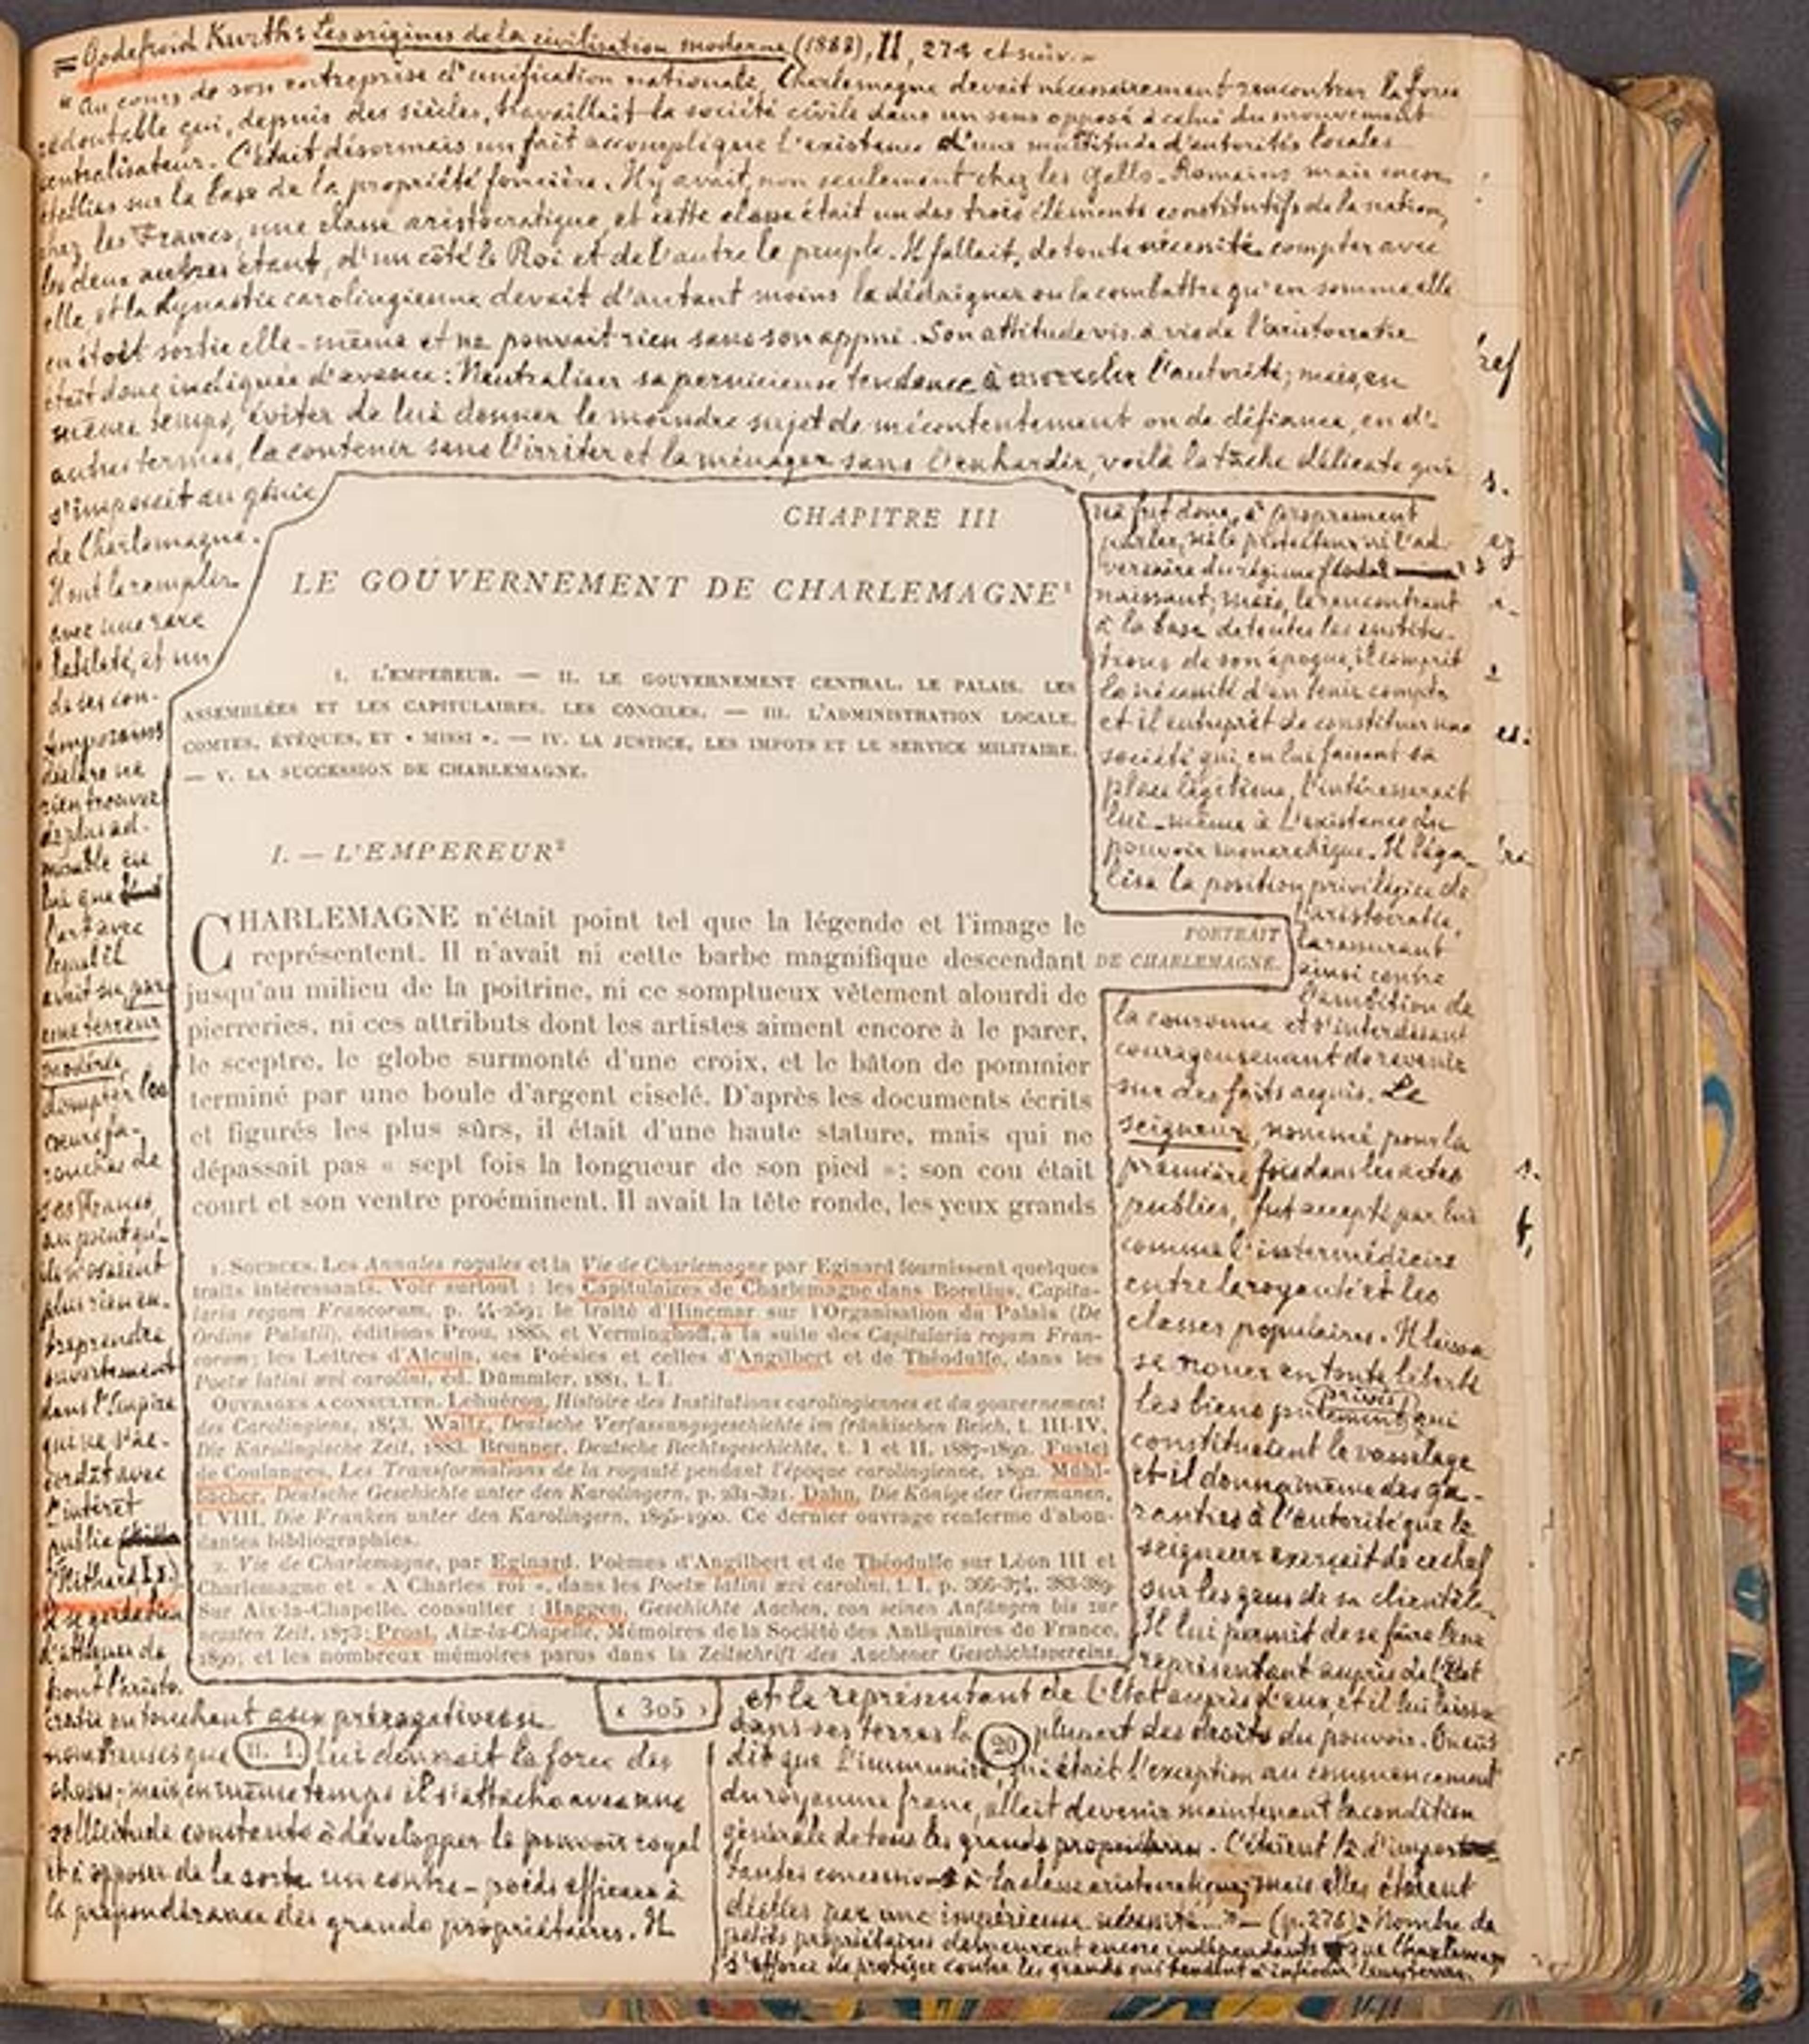 = Godefroid Kurth : Les origines de la civilisation moderne (1888), II, 274 et suiv. -
"Au cours de son entreprise d'unification nationale, Charlemagne devait nécessairement rencontrer la force
redoutable qui, depuis des siècles, travaillait la société civile dans un sens opposé à celui du mouvement
centralisateur. C'était désormais un fait accompli que l'existence d'une multitude d'autorités locales
établies sur la base de la propriété foncière. Il y avait, non seulement chez les Gallo-Romains mais encore
chez les Francs, une classe aristocratique, et cette classe était un des trois éléments constitutifs de la nation,
les deux autres étant, d'un côté le Roi et de l'autre le peuple. Il fallait, de toute nécessité, compter avec
elle, et la dynastie carolingienne devait d'autant moins la dédaigner ou la combattre qu'en somme elle
en était sortie elle-même et ne pouvait rien sans son appui. Son attitude vis à vis de l'aristocratie
était donc indiquée d'avance : Neutraliser sa pernicieuse tendance à morceler l'autorité; mais, en
même temps, éviter de lui donner le moindre sujet de mécontentement ou de défiance, en d'-
autres termes, la contenir sans l'irriter et la ménager sans l'enhardir, voilà la tâche délicate qui
s'imposait au génie
de Charlemagne.
Il sut la remplir
avec une rare
habileté, et un
de ses con-
temporains
déclare ne
rien trouver
de plus ad-
mirable en
lui que
l'art avec
lequel il
avait su par
une terreur
modérée
dompter les
cœurs fa-
rouches de
ses Francs,
au point qu'-
ils n'osaient
plus rien en-
treprendre
ouvertement
dans l'Empire
qui ne s'ac-
cordât avec
l'intérêt
public
(Nithard I,1.)
Il se garda bien
d'attaquer de
front l'aristo-
cratie en touchant aux prérogatives si
nombreuses que lui donnait la force des
choses - mais, en même temps il s'attacha avec une
sollicitude constante à développer le pouvoir royal
et à opposer de la sorte un contre-poids efficace à
la prépondérance des grands propriétaires. Il
CHAPITRE III
LE GOUVERNEMENT DE CHARLEMAGNE¹
I. L'EMPEREUR. — II. LE GOUVERNEMENT CENTRAL. LE PALAIS. LES
ASSEMBLÉES ET LES CAPITULAIRES. LES CONCILES. — III. L'ADMINISTRATION LOCALE.
COMTES, ÉVÊQUES, ET « MISSI ». — IV. LA JUSTICE, LES IMPOTS ET LE SERVICE MILITAIRE.
— V. LA SUCCESSION DE CHARLEMAGNE.
I. — L'EMPEREUR²
CHARLEMAGNE n'était point tel que la légende et l'image le
représentent. Il n'avait ni cette barbe magnifique descendant
jusqu'au milieu de la poitrine, ni ce somptueux vêtement alourdi de
pierreries, ni ces attributs dont les artistes aiment encore à le parer,
le sceptre, le globe surmonté d'une croix, et le bâton de pommier
terminé par une boule d'argent ciselé. D'après les documents écrits
et figurés les plus sûrs, il était d'une haute stature, mais qui ne
dépassait pas « sept fois la longueur de son pied »; son cou était
court et son ventre proéminent. Il avait la tête ronde, les yeux grands
PORTRAIT
DE CHARLEMAGNE.
1. SOURCES. Les Annales royales et la Vie de Charlemagne par Eginard fournissent quelques
traits intéressants. Voir surtout : les Capitulaires de Charlemagne dans Boretius, Capitu-
laria regum Francorum, p. 44-259; le traité d'Hincmar sur l'Organisation du Palais (De
Ordine Palatii), éditions Prou, 1885, et Verminghoff, à la suite des Capitularia regum Fran-
corum; les Lettres d'Alcuin, ses Poésies et celles d'Angilbert et de Théodulfe, dans les
Poetæ latini ævi carolini, éd. Dümmler, 1881, t. I.
OUVRAGES A CONSULTER. Lehuërou, Histoire des Institutions carolingiennes et du gouvernement
des Carolingiens, 1843. Waitz, Deutsche Verfassungsgeschichte im fränkischen Reich, t. III-IV,
Die Karolingische Zeit, 1883. Brunner, Deutsche Rechtsgeschichte, t. I et II, 1887-1892. Fustel
de Coulanges, Les Transformations de la royauté pendant l'époque carolingienne, 1892. Mühl-
bacher, Deutsche Geschichte unter den Karolingern, p. 231-321. Dahn, Die Könige der Germanen,
t. VIII, Die Franken unter den Karolingern, 1895-1900. Ce dernier ouvrage renferme d'abon-
dantes bibliographies.
2. Vie de Charlemagne, par Eginard. Poèmes d'Angilbert et de Théodulfe sur Léon III et
Charlemagne et « A Charles roi », dans les Poetæ latini ævi carolini, t. I, p. 366-374, 383-389.
Sur Aix-la-Chapelle, consulter : Haggen, Geschichte Aachen, von seinen Anfängen bis zur
neusten Zeit, 1873; Prost, Aix-la-Chapelle, Mémoires de la Société des Antiquaires de France,
1890; et les nombreux mémoires parus dans la Zeitschrift des Aachener Geschichtsvereins.
‹ 305 ›
II. 1.
20
ne fut donc, à proprement
parler, ni le protecteur ni l'ad-
versaire du régime féodal
naissant; mais, le rencontrant
à la base de toutes les institu-
tions de son époque, il comprit
la nécessité d'en tenir compte
et il entreprit de constituer une
société qui, en lui faisant sa
place légitime, l'intéresserait
lui-même à l'existence du
pouvoir monarchique. Il léga-
lisa la position privilégiée de
l'aristocratie,
la rassurant
ainsi contre
l'ambition de
la couronne et s'interdisant
courageusement de revenir
sur des faits acquis. Le
seigneur, nommé pour la
première fois dans les actes
publics, fut accepté par lui
comme l'intermédiaire
entre la royauté et les
classes populaires. Il laissa
se nouer en toute liberté
les liens purement privés qui
constituaient le vasselage
et il donna même des ga-
ranties à l'autorité que le
seigneur exerçait de ce chef
sur les gens de sa clientèle.
Il lui permit de se faire leur
représentant auprès de l'Etat
et le représentant de l'Etat auprès d'eux, et il lui laissa
dans ses terres la plupart des droits du pouvoir. On eût
dit que l'immunité, qui était l'exception au commencement
du royaume franc, allait devenir maintenant la condition
générale de tous les grands propriétaires. C'étaient là d'impor-
tantes concessions à la classe aristocratique; mais elles étaient
dictées par une impérieuse nécessité..." - (p. 276) = Nombre de
petits propriétaires demeurent encore indépendants que Charlemagne
s'efforce de protéger contre les grands qui tendent à